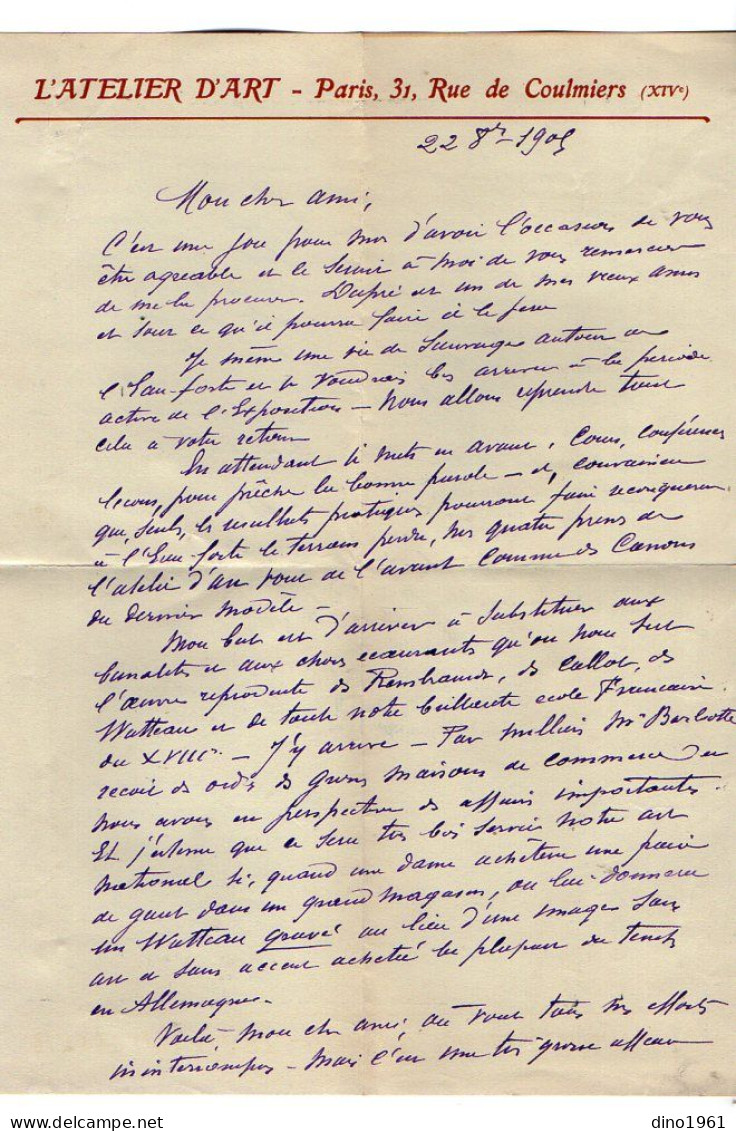 L'ATELIER D'ART - Paris, 31, Rue de Coulmiers (XIVe)
22 8bre 1905
Mon cher ami,
C'est une joie pour moi d'avoir l'occasion de vous
être agréable et ce serait à moi de vous remercier
de me la procurer. Dupré est un de mes vieux amis
et tout ce qu'il pourra faire il le fera
Je mène une vie de Sauvage autour de
l'Eau forte et je voudrais les arriver à la période
active de l'Exposition - Nous allons reprendre tout
cela à votre retour
En attendant je mets en avant, Cours, Conférences
lecons, pour prêcher la bonne parole - et, convaincu
que, seuls, les résultats pratiques pourront faire reconquérir
à l'Eau forte le terrain perdu, les quatre presses de
l'atelier d'art vont de l'avant comme des Canons
du dernier modèle -
Mon but est d'arriver à substituer aux
banalités et aux choses écœurantes qu'on nous sert
l'œuvre reproduite de Rembrandt, de Callot, de
Watteau et de toute notre brillante école Francaise
du XVIIIe. - J'y arrive - Par milliers Mr Barbotte
recoit des ordres de grosses maisons de commerce et
nous avons en perspective des affaires importantes.
Et j'estime que ce sera très bien servir notre art
national si, quand une dame achètera une paire
de gants dans un grand magasin, on lui donnera
un Watteau gravé au lieu d'une images sans
art et sans accent achetée la plupart du temps
en Allemagne.
Voilà mon cher ami, où vont tous mes efforts
ininterrompus - Mais c'est une très grosse affaire
dino1961